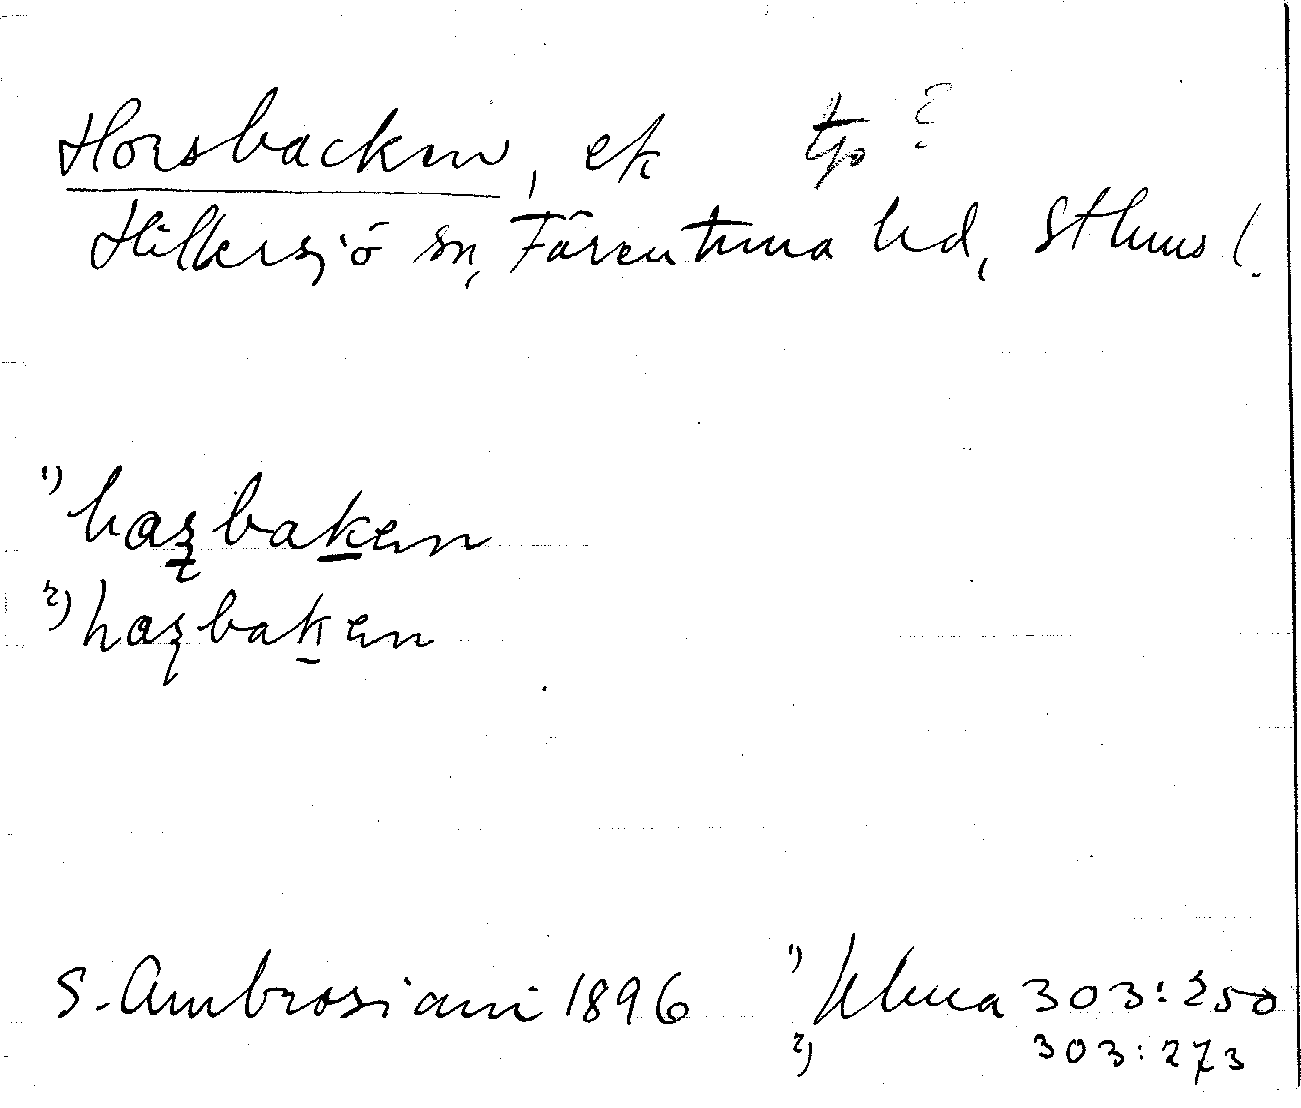 Horsbacken, ek typ?
Hilkersjö sn, Färentuna hd, Sthms l.
1) hazbaken
2) hazbaken
S. Ambrosiani 1896 1) Ulma 303:250
2) 303:273